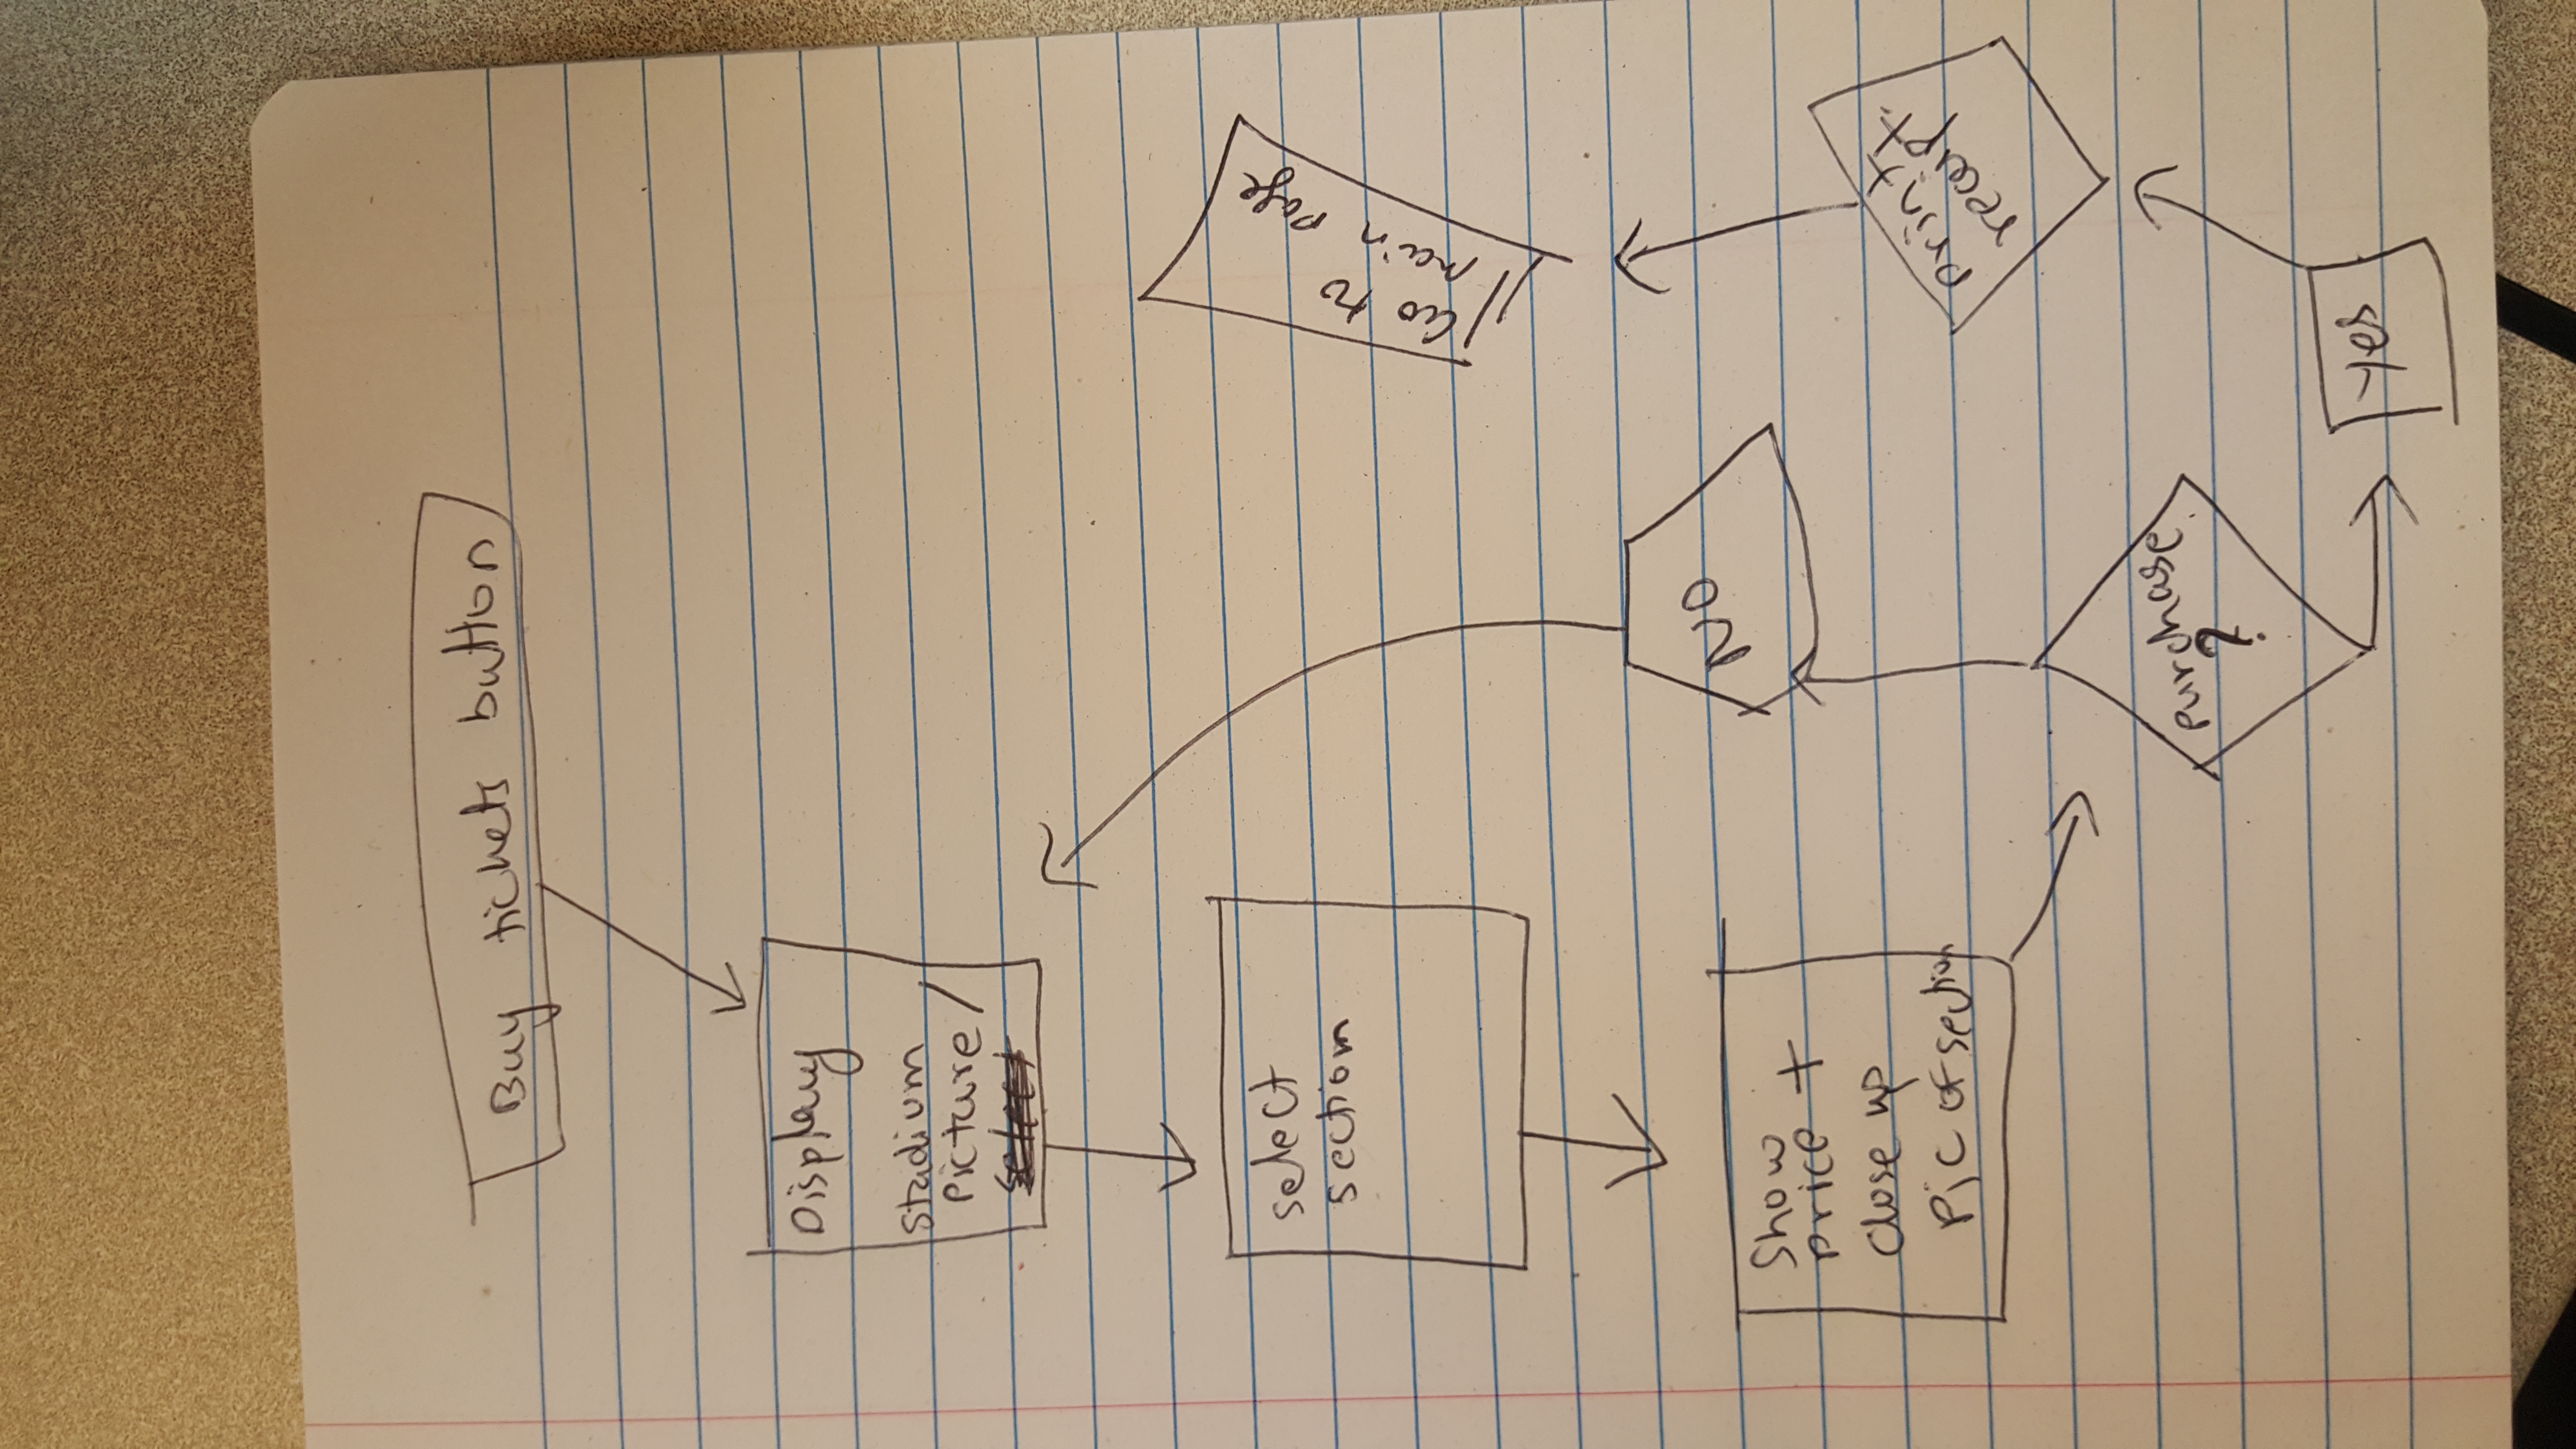 Buy tickets button
Display
Stadium
Picture/
select
section
Show
price +
close up
Pic of section
NO
purchase
?
yes
print
receipt.
Go to
main page